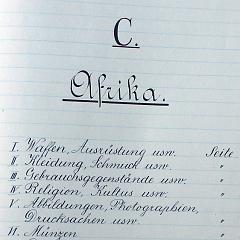 C.
Afrika.
I. Waffen, Ausrüstung usw. Seite
II. Kleidung, Schmuck usw. "
III. Gebrauchsgegenstände usw. "
IV. Religion, Kultus usw. "
V. Abbildungen, Photographien,
Drucksachen usw. "
VI. Münzen "